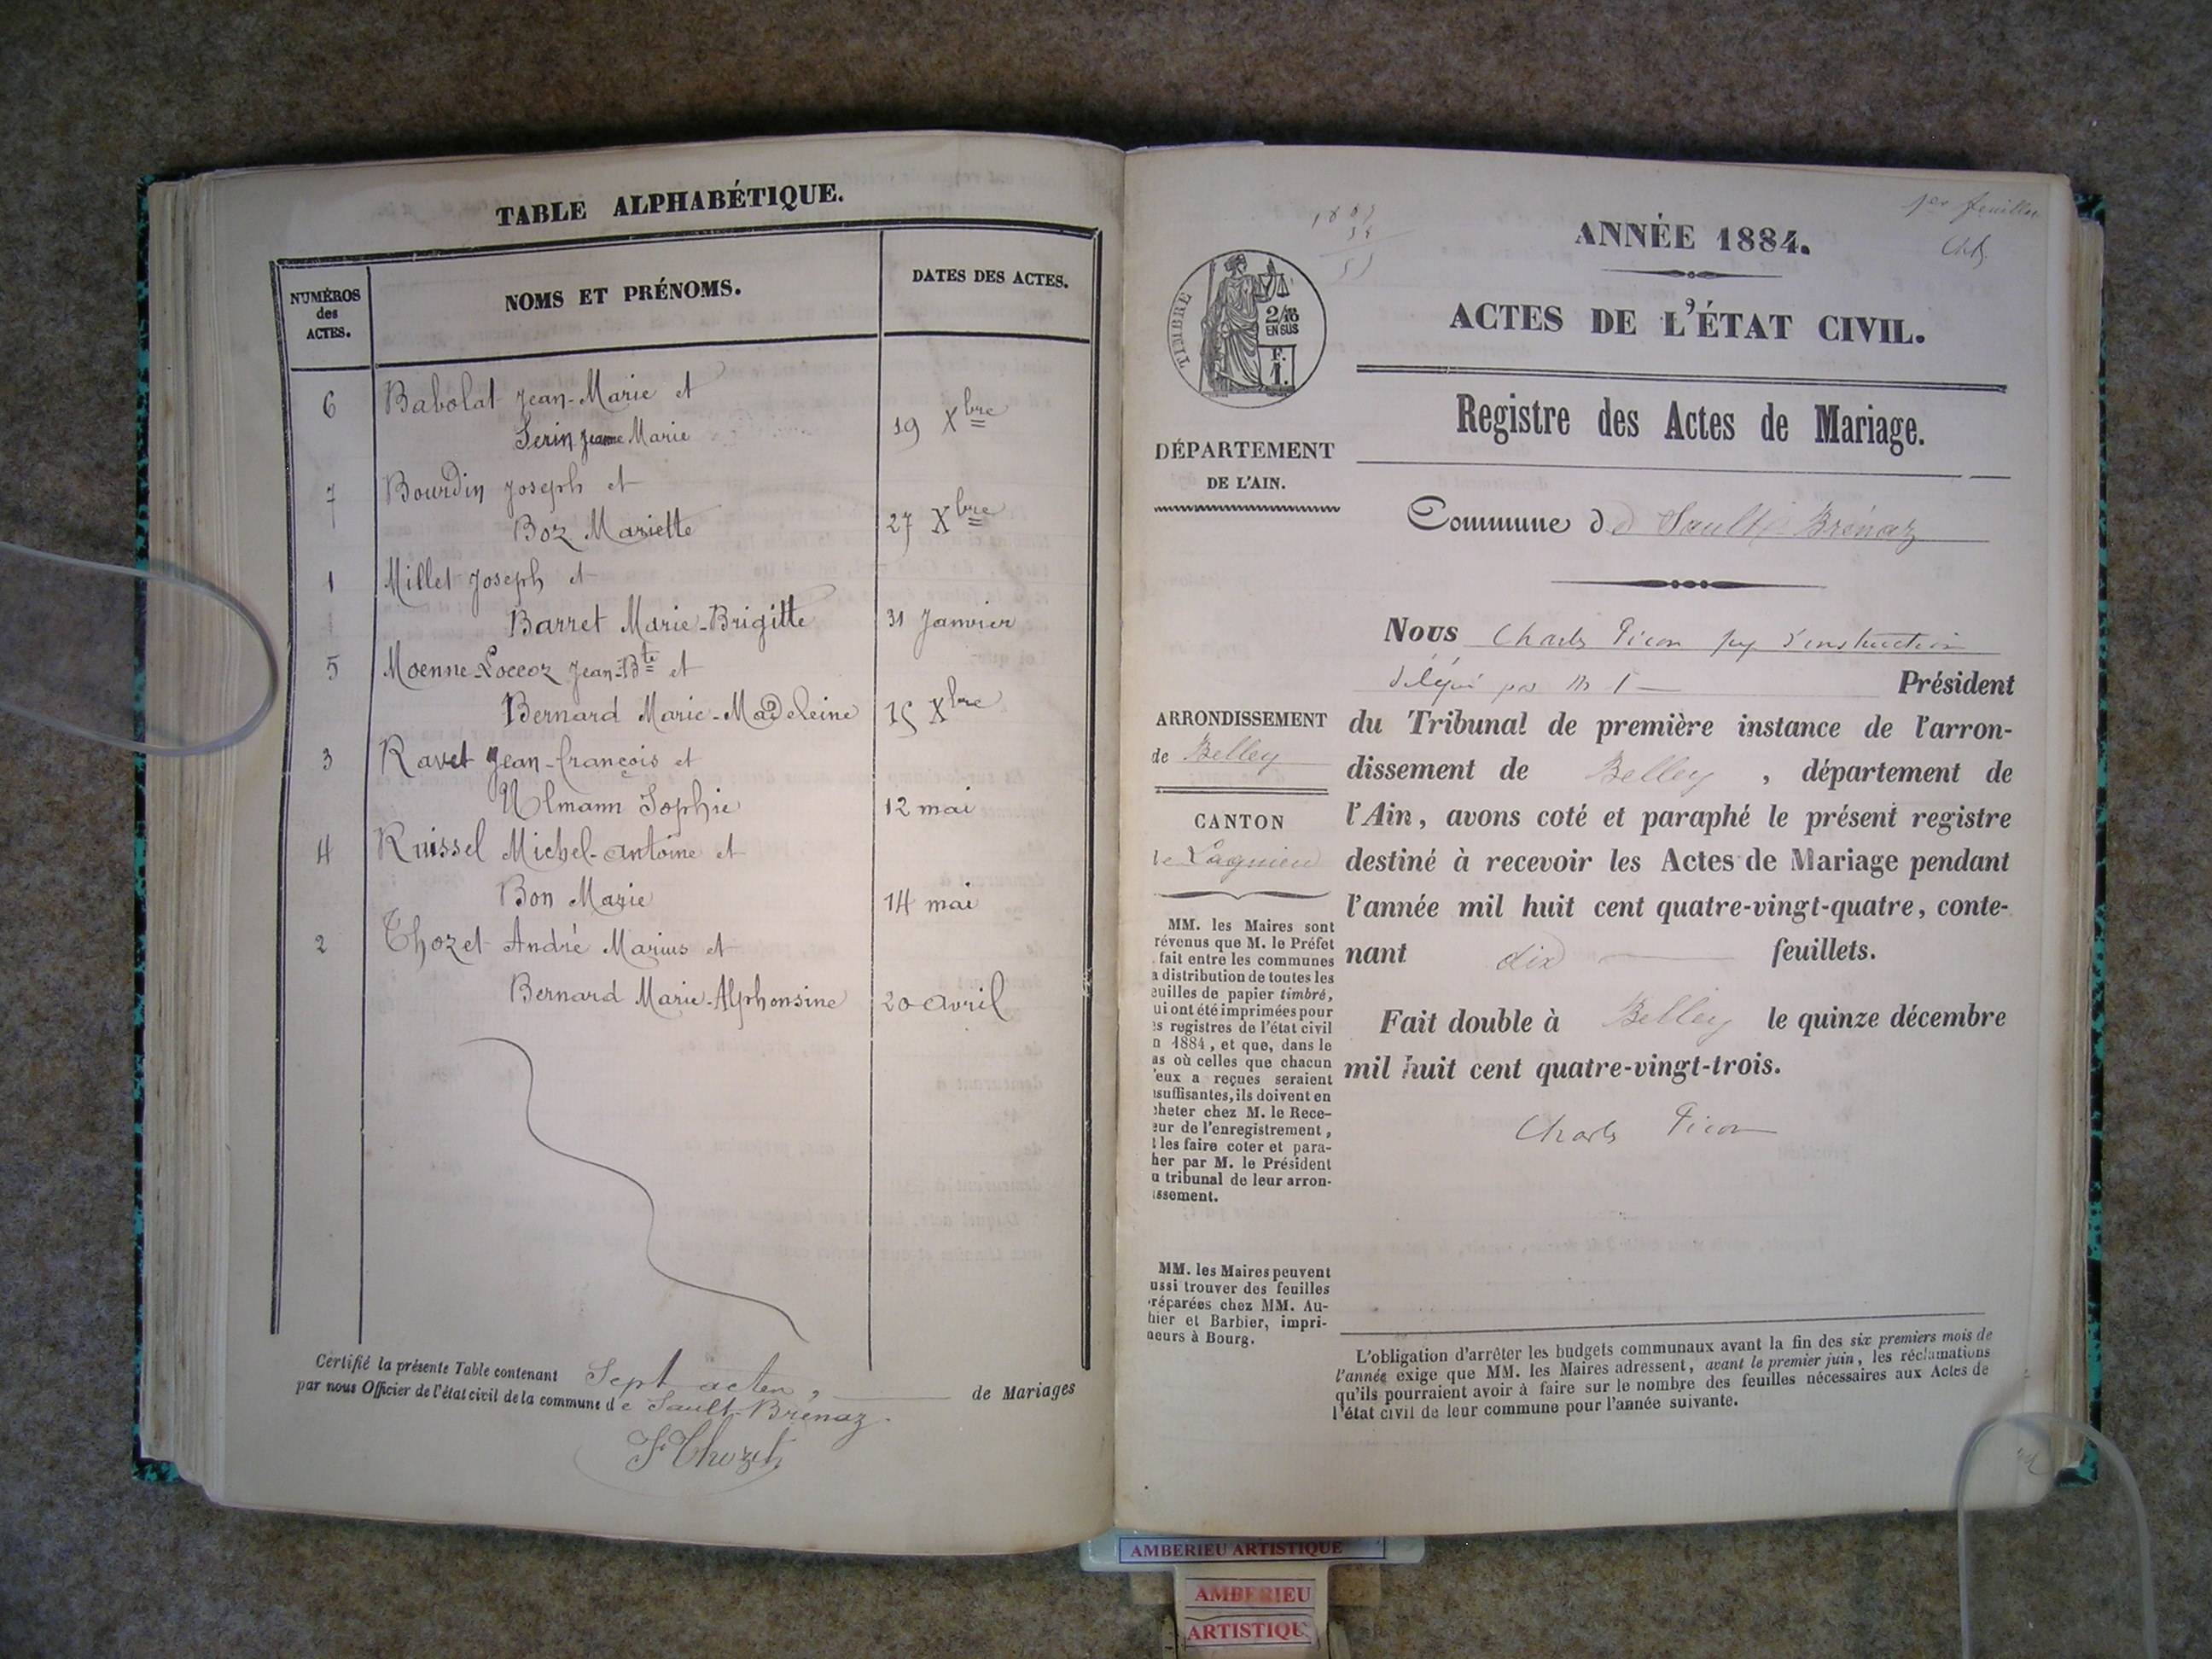 TABLE ALPHABÉTIQUE.
NUMÉROS
des
ACTES.
NOMS ET PRÉNOMS.
DATES DES ACTES.
6 Babolat Jean-Marie et
Serin Jeanne Marie 19 Xbre
7 Bourdin Joseph et
Boz Mariette 27 Xbre
1 Millet Joseph et
Barret Marie-Brigitte 31 Janvier
5 Moenne-Loccoz Jean-Bte et
Bernard Marie-Madeleine 15 Xbre
3 Ravet Jean-François et
Ulmann Sophie 12 mai
4 Ruissel Michel-Antoine et
Bon Marie 14 mai
2 Thozet André Marius et
Bernard Marie-Alphonsine 20 avril
Certifié la présente Table contenant Sept actes, de Mariages
par nous Officier de l'état civil de la commune de Sault-Brénaz.
F. Thozet
1er feuillet
ANNÉE 1884.
TIMBRE
2/10
EN SUS
F.
1.
ACTES DE L'ÉTAT CIVIL.
Registre des Actes de Mariage.
DÉPARTEMENT
DE L'AIN.
Commune d de Sault-Brénaz
Nous Charles Picon juge d'instruction
délégué par M. l Président
ARRONDISSEMENT
de Belley
CANTON
de Lagnieu
du Tribunal de première instance de l'arron-
dissement de Belley, département de
l'Ain, avons coté et paraphé le présent registre
destiné à recevoir les Actes de Mariage pendant
l'année mil huit cent quatre-vingt-quatre, conte-
nant dix feuillets.
Fait double à Belley le quinze décembre
mil huit cent quatre-vingt-trois.
Charles Picon
MM. les Maires sont
révenus que M. le Préfet
fait entre les communes
a distribution de toutes les
euilles de papier timbré,
ui ont été imprimées pour
es registres de l'état civil
n 1884, et que, dans le
as où celles que chacun
'eux a reçues seraient
nsuffisantes, ils doivent en
cheter chez M. le Rece-
eur de l'enregistrement,
t les faire coter et para-
her par M. le Président
u tribunal de leur arron-
issement.
MM. les Maires peuvent
ussi trouver des feuilles
réparées chez MM. Au-
hier et Barbier, impri-
neurs à Bourg.
L'obligation d'arrêter les budgets communaux avant la fin des six premiers mois de
l'année exige que MM. les Maires adressent, avant le premier juin, les réclamations
qu'ils pourraient avoir à faire sur le nombre des feuilles nécessaires aux Actes de
l'état civil de leur commune pour l'année suivante.
AMBERIEU ARTISTIQUE
AMBERIEU
ARTISTIQU